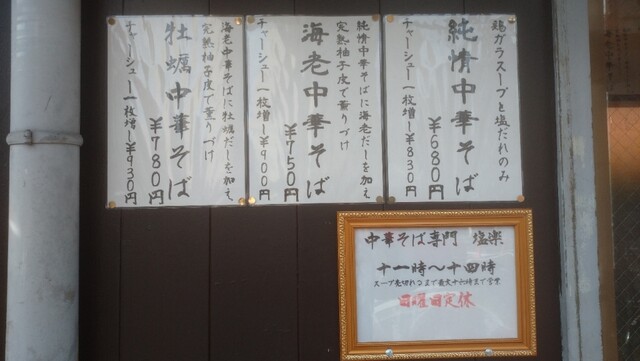 鶏ガラスープと塩だれのみ
純情中華そば
¥680円
チャーシュー一枚増し¥830円
純情中華そばに海老だしを加え
完熟柚子皮で薫りづけ
海老中華そば
¥750円
チャーシュー一枚増し¥900円
海老中華そばに牡蠣だしを加え
完熟柚子皮で薫りづけ
牡蠣中華そば
¥780円
チャーシュー一枚増し¥930円
中華そば専門 塩楽
十一時〜十四時
スープ売切れるまで最大十六時まで営業
日曜日定休